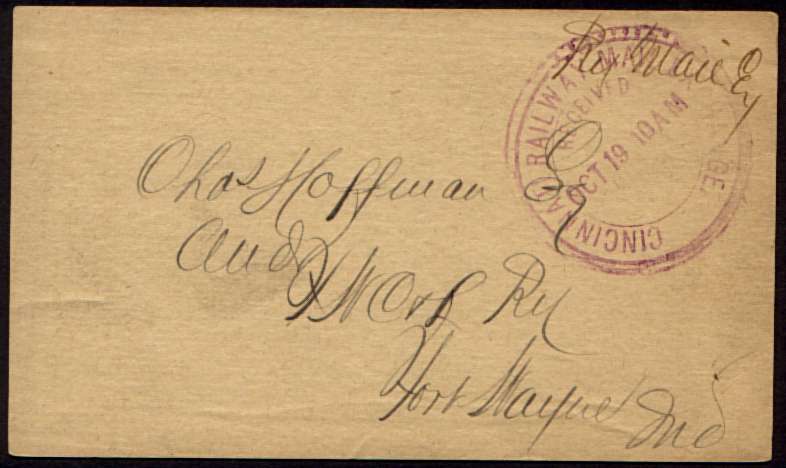 Ry Mail Ey
CINCINNATI RAILWAY MAIL
RECEIVED
OCT 19 10 AM
Chas Hoffman Ey
Aud
Ry
Fort Wayne Ind